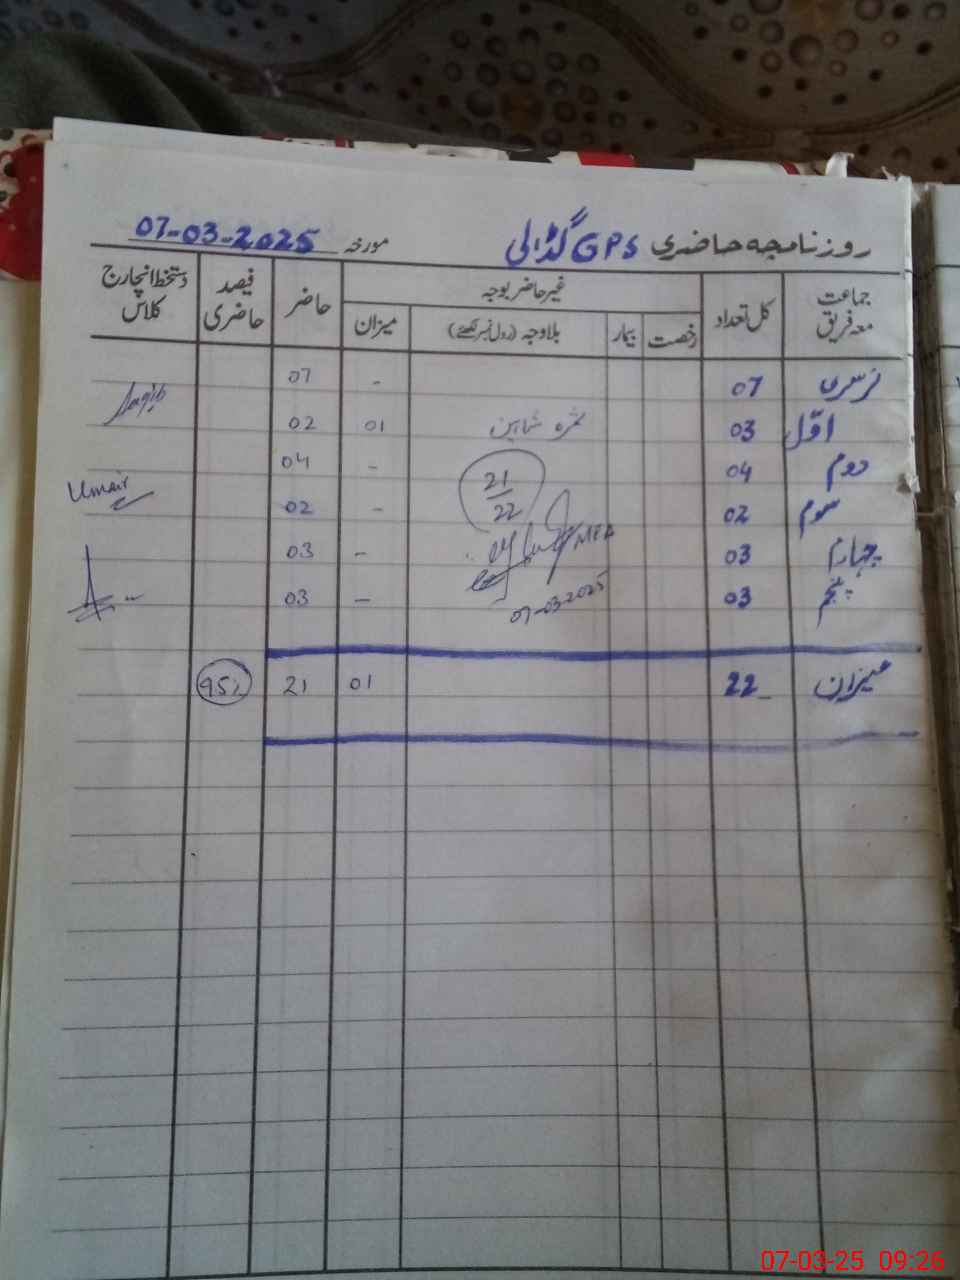 روزنامچہ حاضری GPS گڈالی مورخہ 07-03-2025
جماعت معہ فریق کل تعداد غیر حاضر بوجہ حاضر فیصد حاضری دستخط انچارج کلاس
رخصت بیمار بلاوجہ (رول نمبر لکھئے) میزان
نرسری 07 - 07
اوّل 03 ثمرہ شاہین 01 02
دوم 04 - 04
سوم 02 - 02
چہارم 03 - 03
پنجم 03 - 03
21/22
MEA
07-03-2025
Umair
میزان 22 01 21 95%
07-03-25 09:26